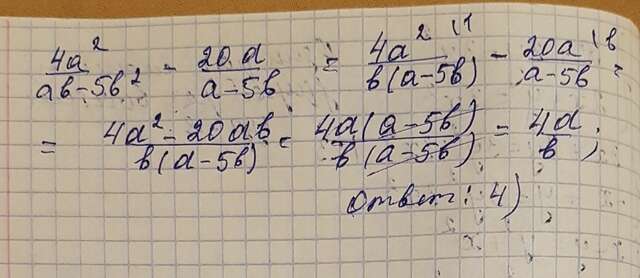 4a² / (ab - 5b²) - 20a / (a - 5b) = 4a² (1 / (b(a - 5b)) - 20a (b / (a - 5b) =
= (4a² - 20ab) / (b(a - 5b)) = 4a(a - 5b) / (b(a - 5b)) = 4a / b;
Ответ: 4)